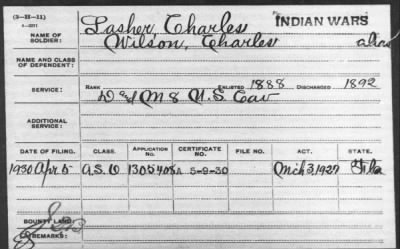 (3-H-11)
INDIAN WARS
NAME OF SOLDIER: Lasher, Charles
Wilson, Charles alias
NAME AND CLASS OF DEPENDENT:
SERVICE: RANK ENLISTED 1888 DISCHARGED 1892
D and M 8 U.S. Cav
ADDITIONAL SERVICE:
DATE OF FILING. CLASS. APPLICATION NO. CERTIFICATE NO. FILE NO. ACT. STATE.
1930 Apr 5 A.S.O 1305408 A 5-9-30 Mch 3, 1927
BOUNTY LAND:
REMARKS: